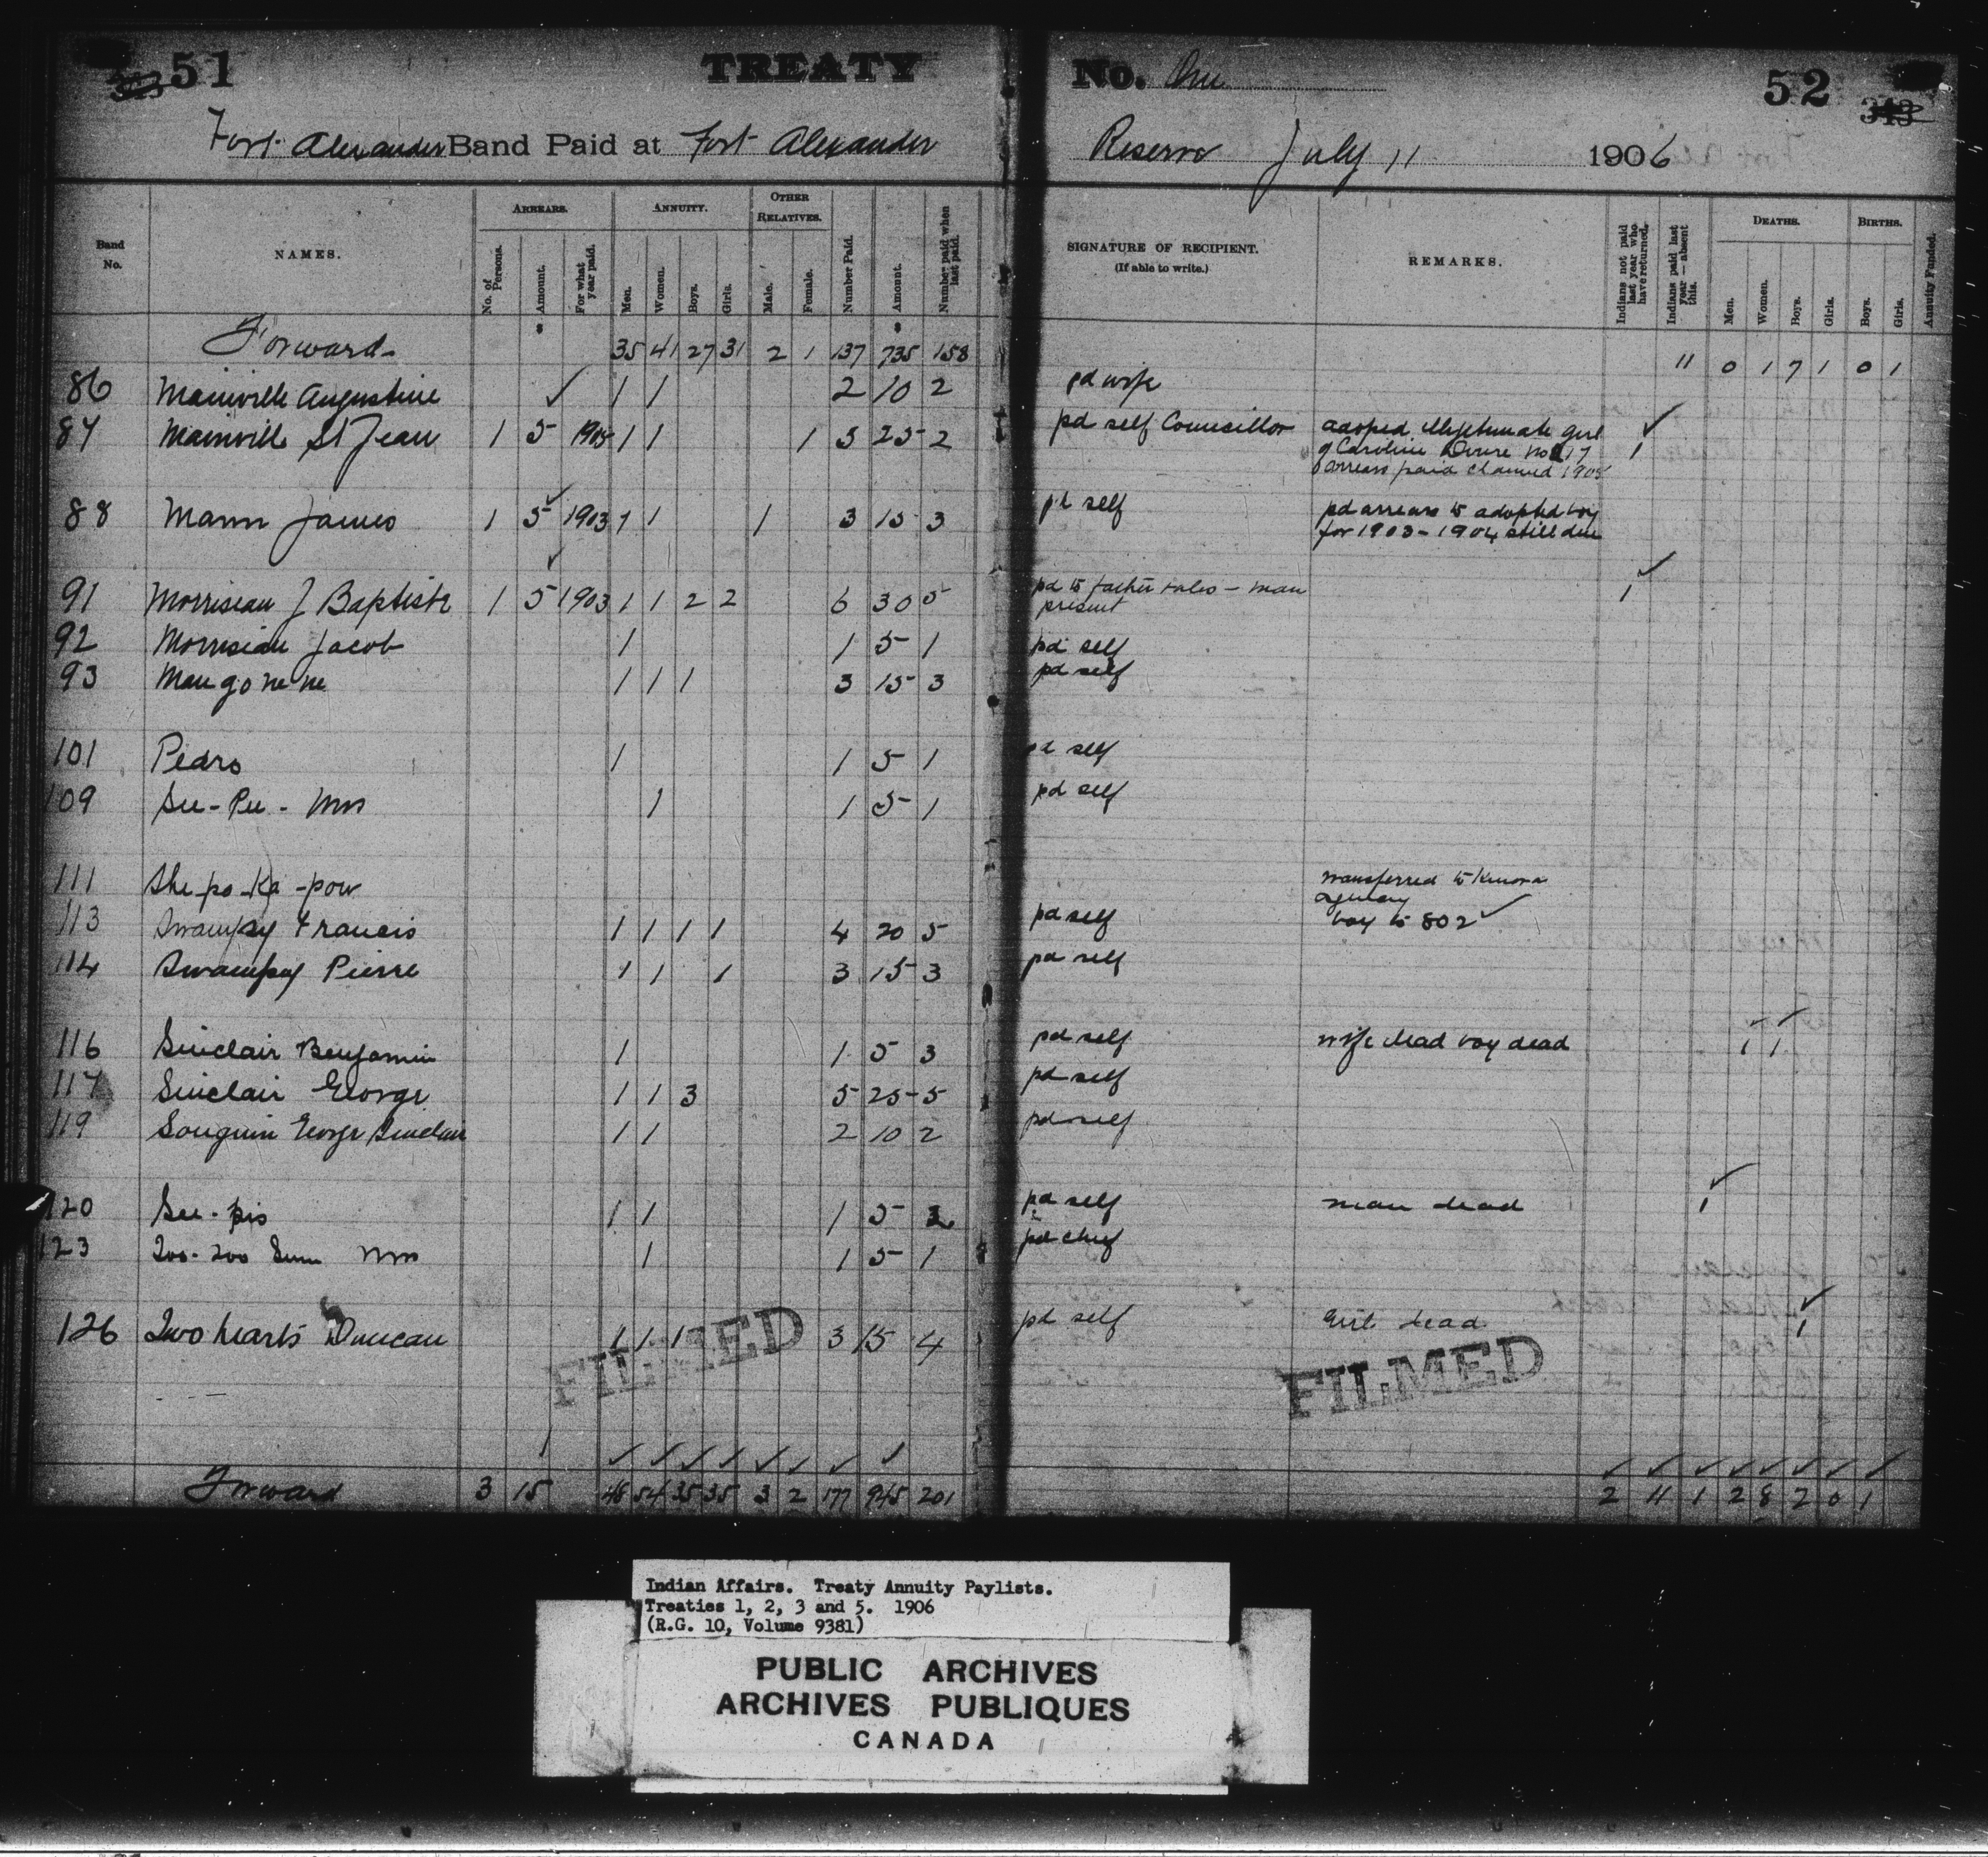 51 TREATY No. One 52
343
Fort Alexander Band Paid at Fort Alexander Reserve July 11 1906
Band No. NAMES. ARREARS. ANNUITY. OTHER RELATIVES.
No. of Persons. Amount. For what year paid. Men. Women. Boys. Girls. Male. Female. Number Paid. Amount. Number paid when last paid.
SIGNATURE OF RECIPIENT. (If able to write.) REMARKS. Indians not paid last year who have returned. Indians paid last year — absent this. DEATHS. Men. Women. Boys. Girls. BIRTHS. Boys. Girls. Annuity Funded.
Forward 35 41 27 31 2 1 137 735 158 11 0 1 7 1 0 1
86 Mainville Augustine ✓ 1 1 2 10 2 pd wife
87 Mainville St Jean 1 5 1905 1 1 1 5 25 2 pd self Councillor adoped illegitimate girl ✓
of Caroline No 17 1
arrears paid claimed 1905
88 Mann James 1 5 ✓ 1903 1 1 1 3 15 3 pd self pd arrears to adopted boy
for 1903 - 1904 still due
91 Morriseau J Baptiste 1 5 ✓ 1903 1 1 2 2 6 30 5 pd to father - man ✓ 1
present
92 Morriseau Jacob 1 1 5 1 pd self
93 Man go ne ne 1 1 1 3 15 3 pd self
101 Pedro 1 1 5 1 pd self
109 See-Pee- Mrs 1 1 5 1 pd self
111 She-po-Ka-pow transferred to Kenora
agency
113 Swampy Francis 1 1 1 1 4 20 5 pd self boy to 802 ✓
114 Swampy Pierre 1 1 1 3 15 3 pd self
116 Sinclair Benjamin 1 1 5 3 pd self wife dead boy dead 1 1
117 Sinclair George 1 1 3 5 25 5 pd self
119 Souquin George Sinclair 1 1 2 10 2 pd self
120 See-pis 1 1 1 5 2 pd self man dead ✓ 1
123 Mrs 1 1 5 1 pd chief
126 Two hearts Duncan 1 1 1 3 15 4 pd self Girl dead ✓ 1
FILMED FILMED
Forward 3 15 48 54 35 35 3 2 177 945 201 2 11 1 2 8 2 0 1
Indian Affairs. Treaty Annuity Paylists.
Treaties 1, 2, 3 and 5. 1906
(R.G. 10, Volume 9381)
PUBLIC ARCHIVES
ARCHIVES PUBLIQUES
CANADA